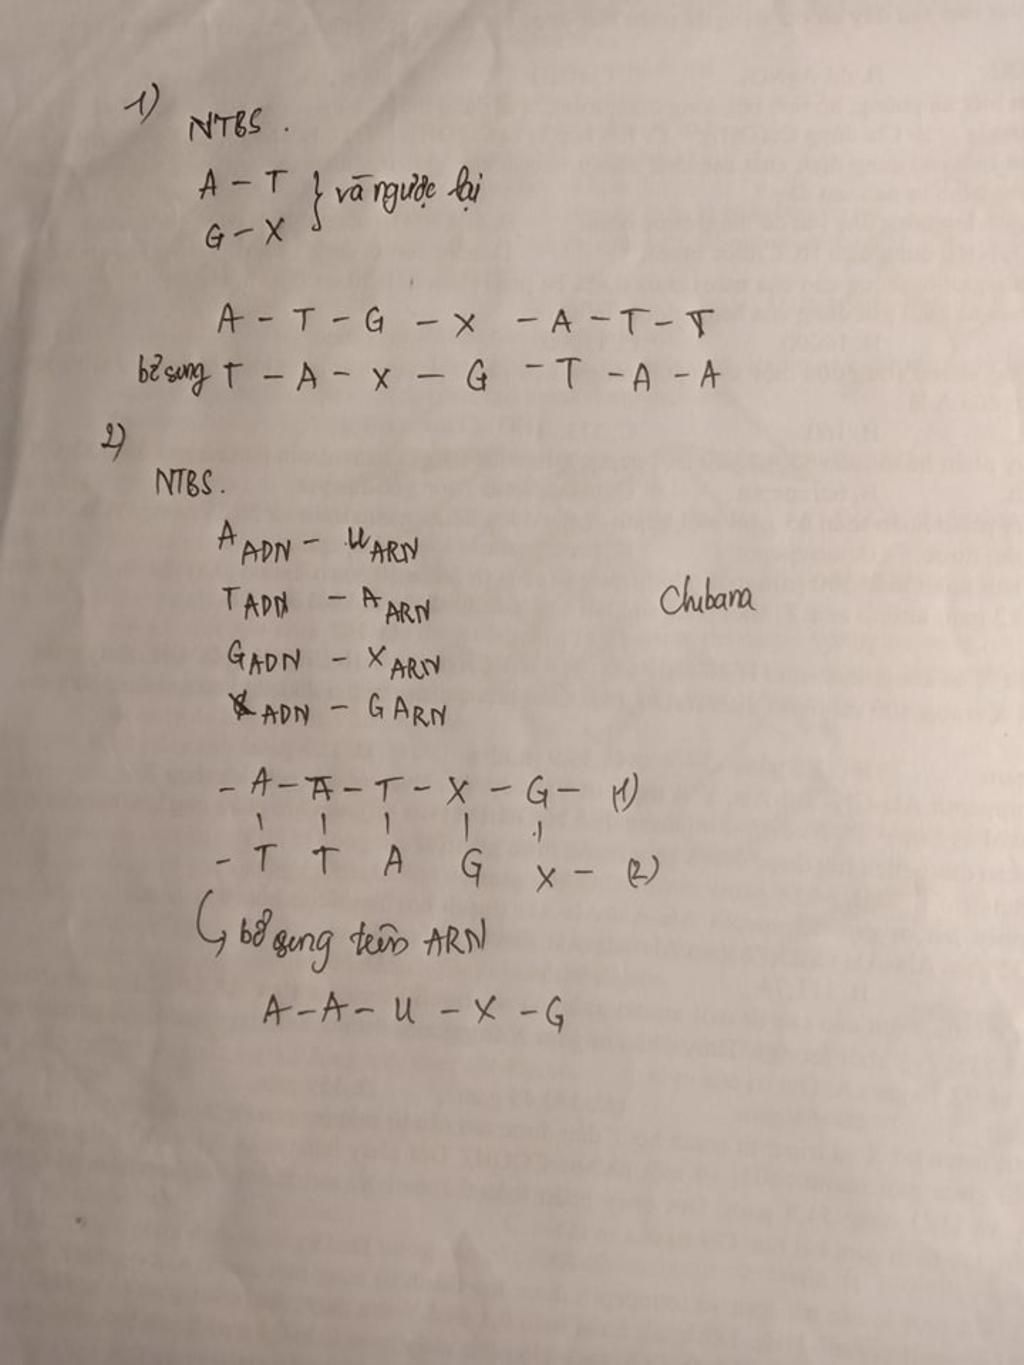 1)
NTBS.
A - T } và ngược lại
G - X
A - T - G - X - A - T - T
bổ sung T - A - X - G - T - A - A
2)
NTBS.
A ADN - U ARN
T ADN - A ARN
G ADN - X ARN
X ADN - G ARN
Chibana
- A - A - T - X - G - (1)
- T T A G X - (2)
bổ sung trên ARN
A - A - U - X - G